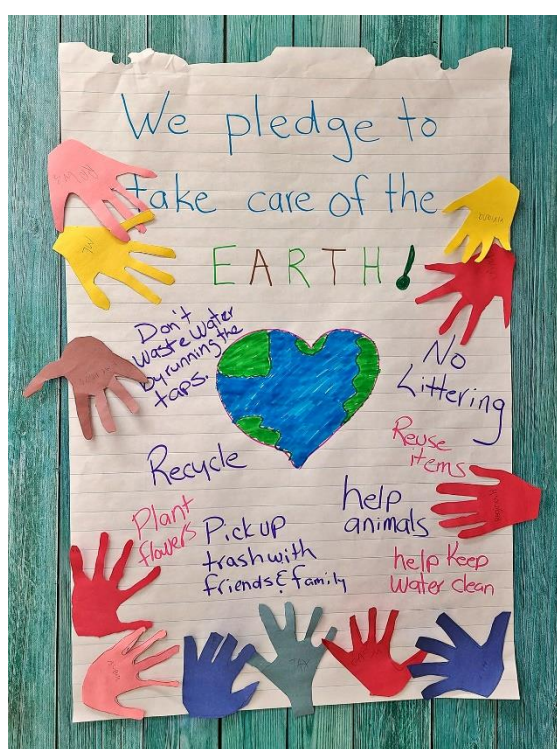 We pledge to
take care of the
EARTH!
Don't
waste water
by running the
taps.
No
Littering
Reuse
items
Recycle
help
animals
Plant
flowers
Pick up
trash with
friends & family
help keep
water clean